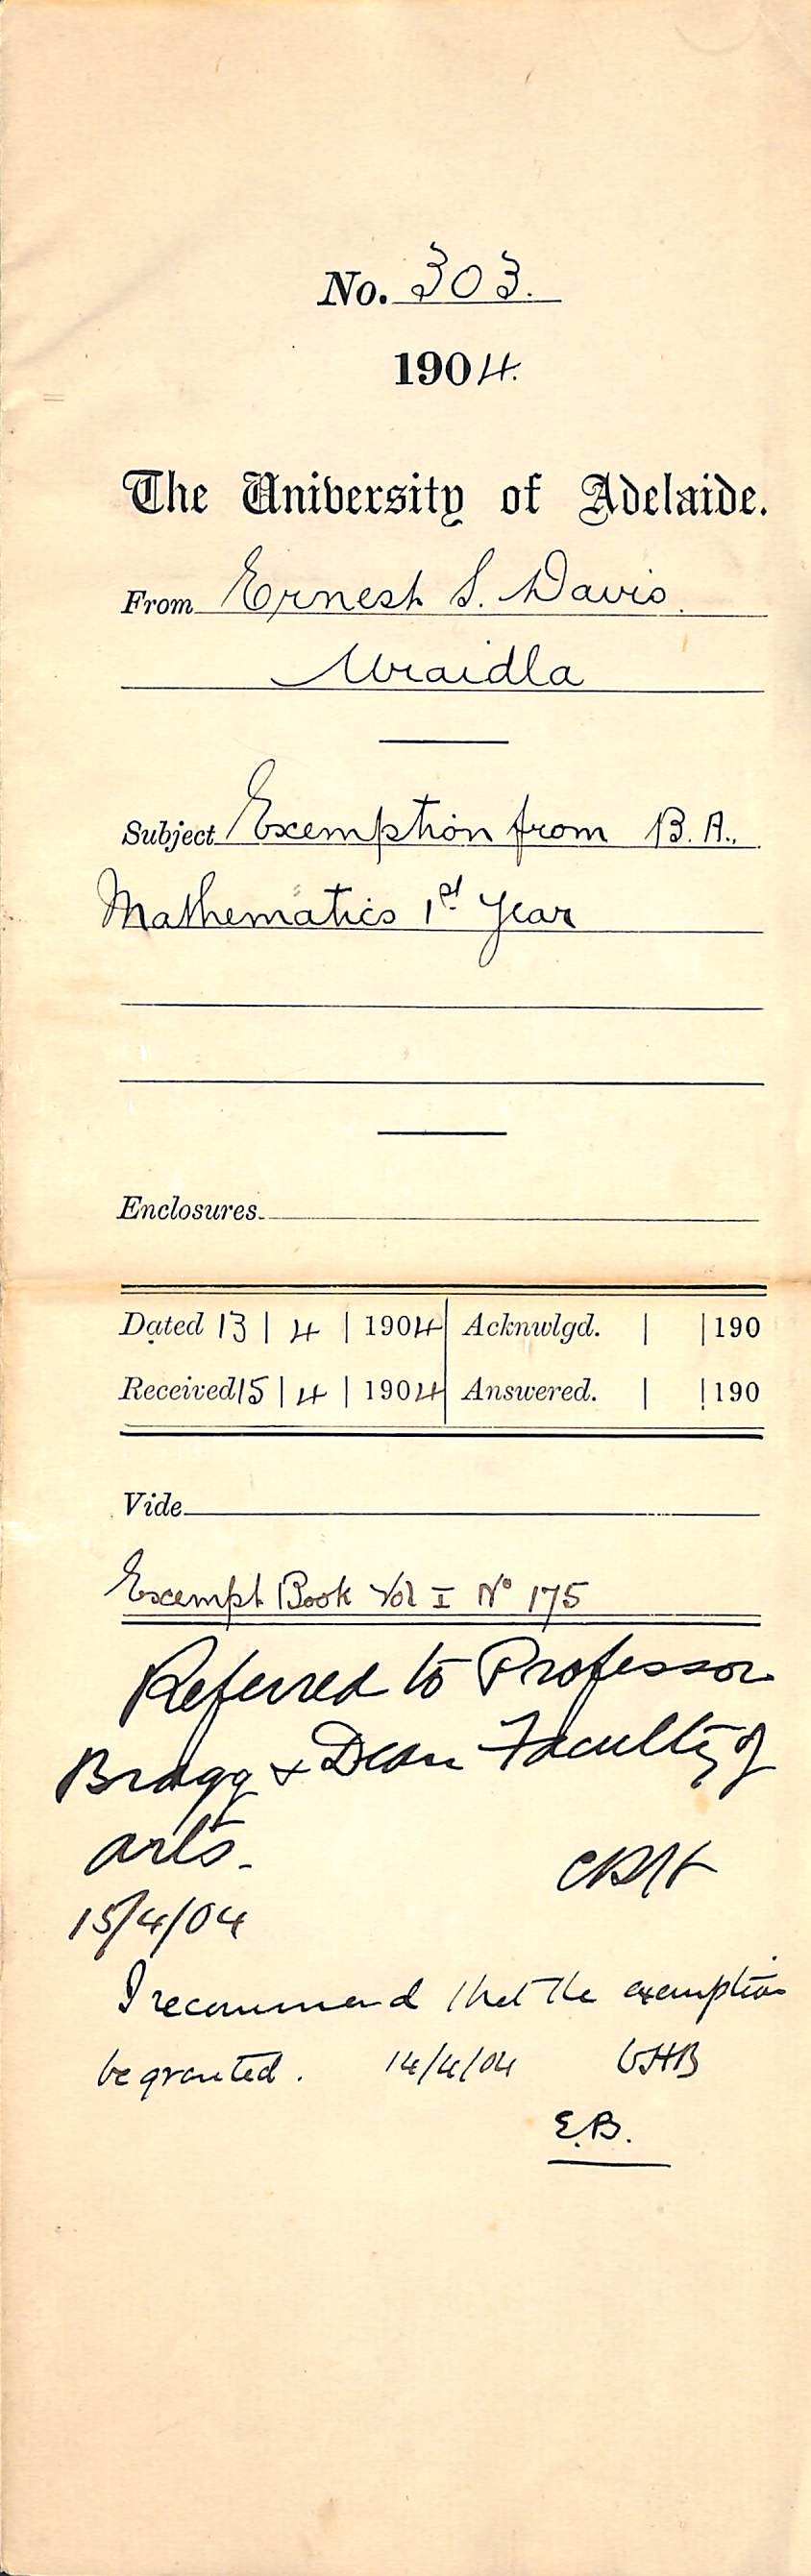 No. 303.
1904.
The University of Adelaide.
From Ernest S. Davis.
Uraidla
Subject Exemption from B.A.,
Mathematics 1st Year
Enclosures.
Dated 13 | 4 | 1904 Acknwlgd. | | 190
Received 15 | 4 | 1904 Answered. | | 190
Vide
Exempt Book Vol I No 175
Referred to Professor
Bragg & Dean Faculty of
Arts.
15/4/04
I recommend that the exemption
be granted. 14/4/04 WHB
E.B.